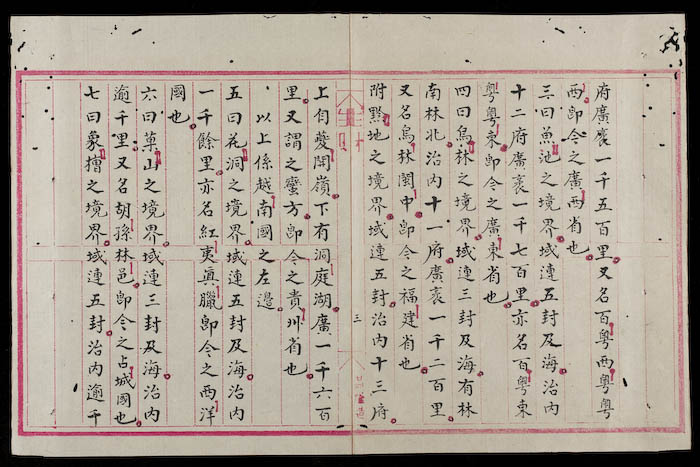 府廣袤一千五百里又名百粤西粤粤
西即今之廣西省也
三曰魚池之境界域連五封及海治内
十二府廣袤一千七百里亦名百粤東
粤粤東即今之廣東省也
四曰烏林之境界域連三封及海有林
南林北治内十一府廣袤一千二百里
又名烏林閩中即今之福建省也
附黔地之境界域連五封治内十三府
三
上自夔閗嶺下有洞庭湖廣一千六百
里又謂之蠻方即今之貴州省也
以上係越南國之左邉
五曰花洞之境界域連五封及海治内
一千餘里亦名紅夷眞臘即今之西洋
國也
六曰草山之境界域連三封及海治内
逾千里又名胡孫林邑即今之占城國也
七曰象橹之境界域連五封治内逾千